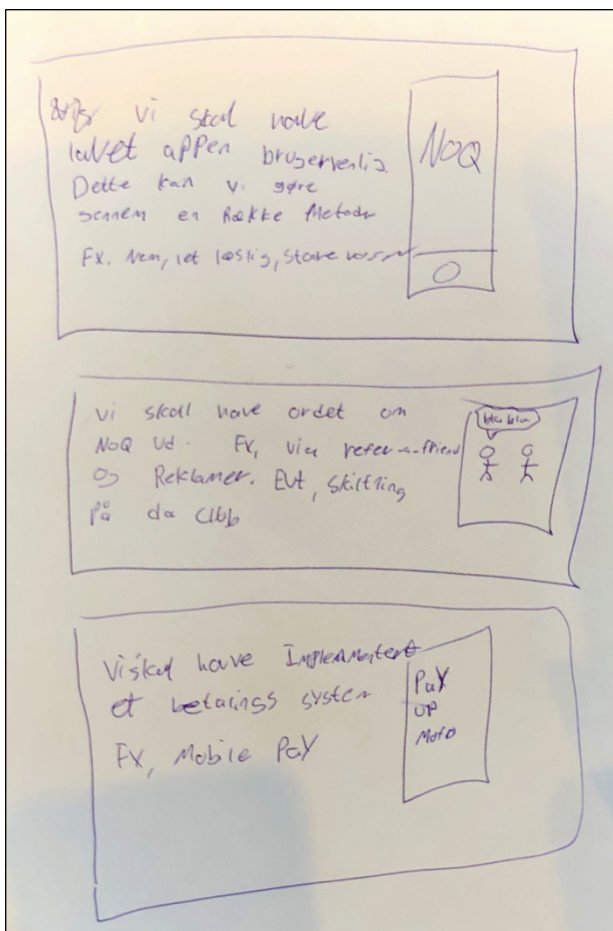 vi skal have
lavet appen brugervenlig
Dette kan vi gøre
gennem en Række Metoder
FX. Nem, let læslig, store
NOQ
vi skall have ordet om
NOQ Ud. FX, via refer-a-friend
og Reklamer. Evt, Skiltning
på da clbb
bla bla
Vi skal have Implementeret
et betalings system
FX, Mobile Pay
Pay
UP
Mofo